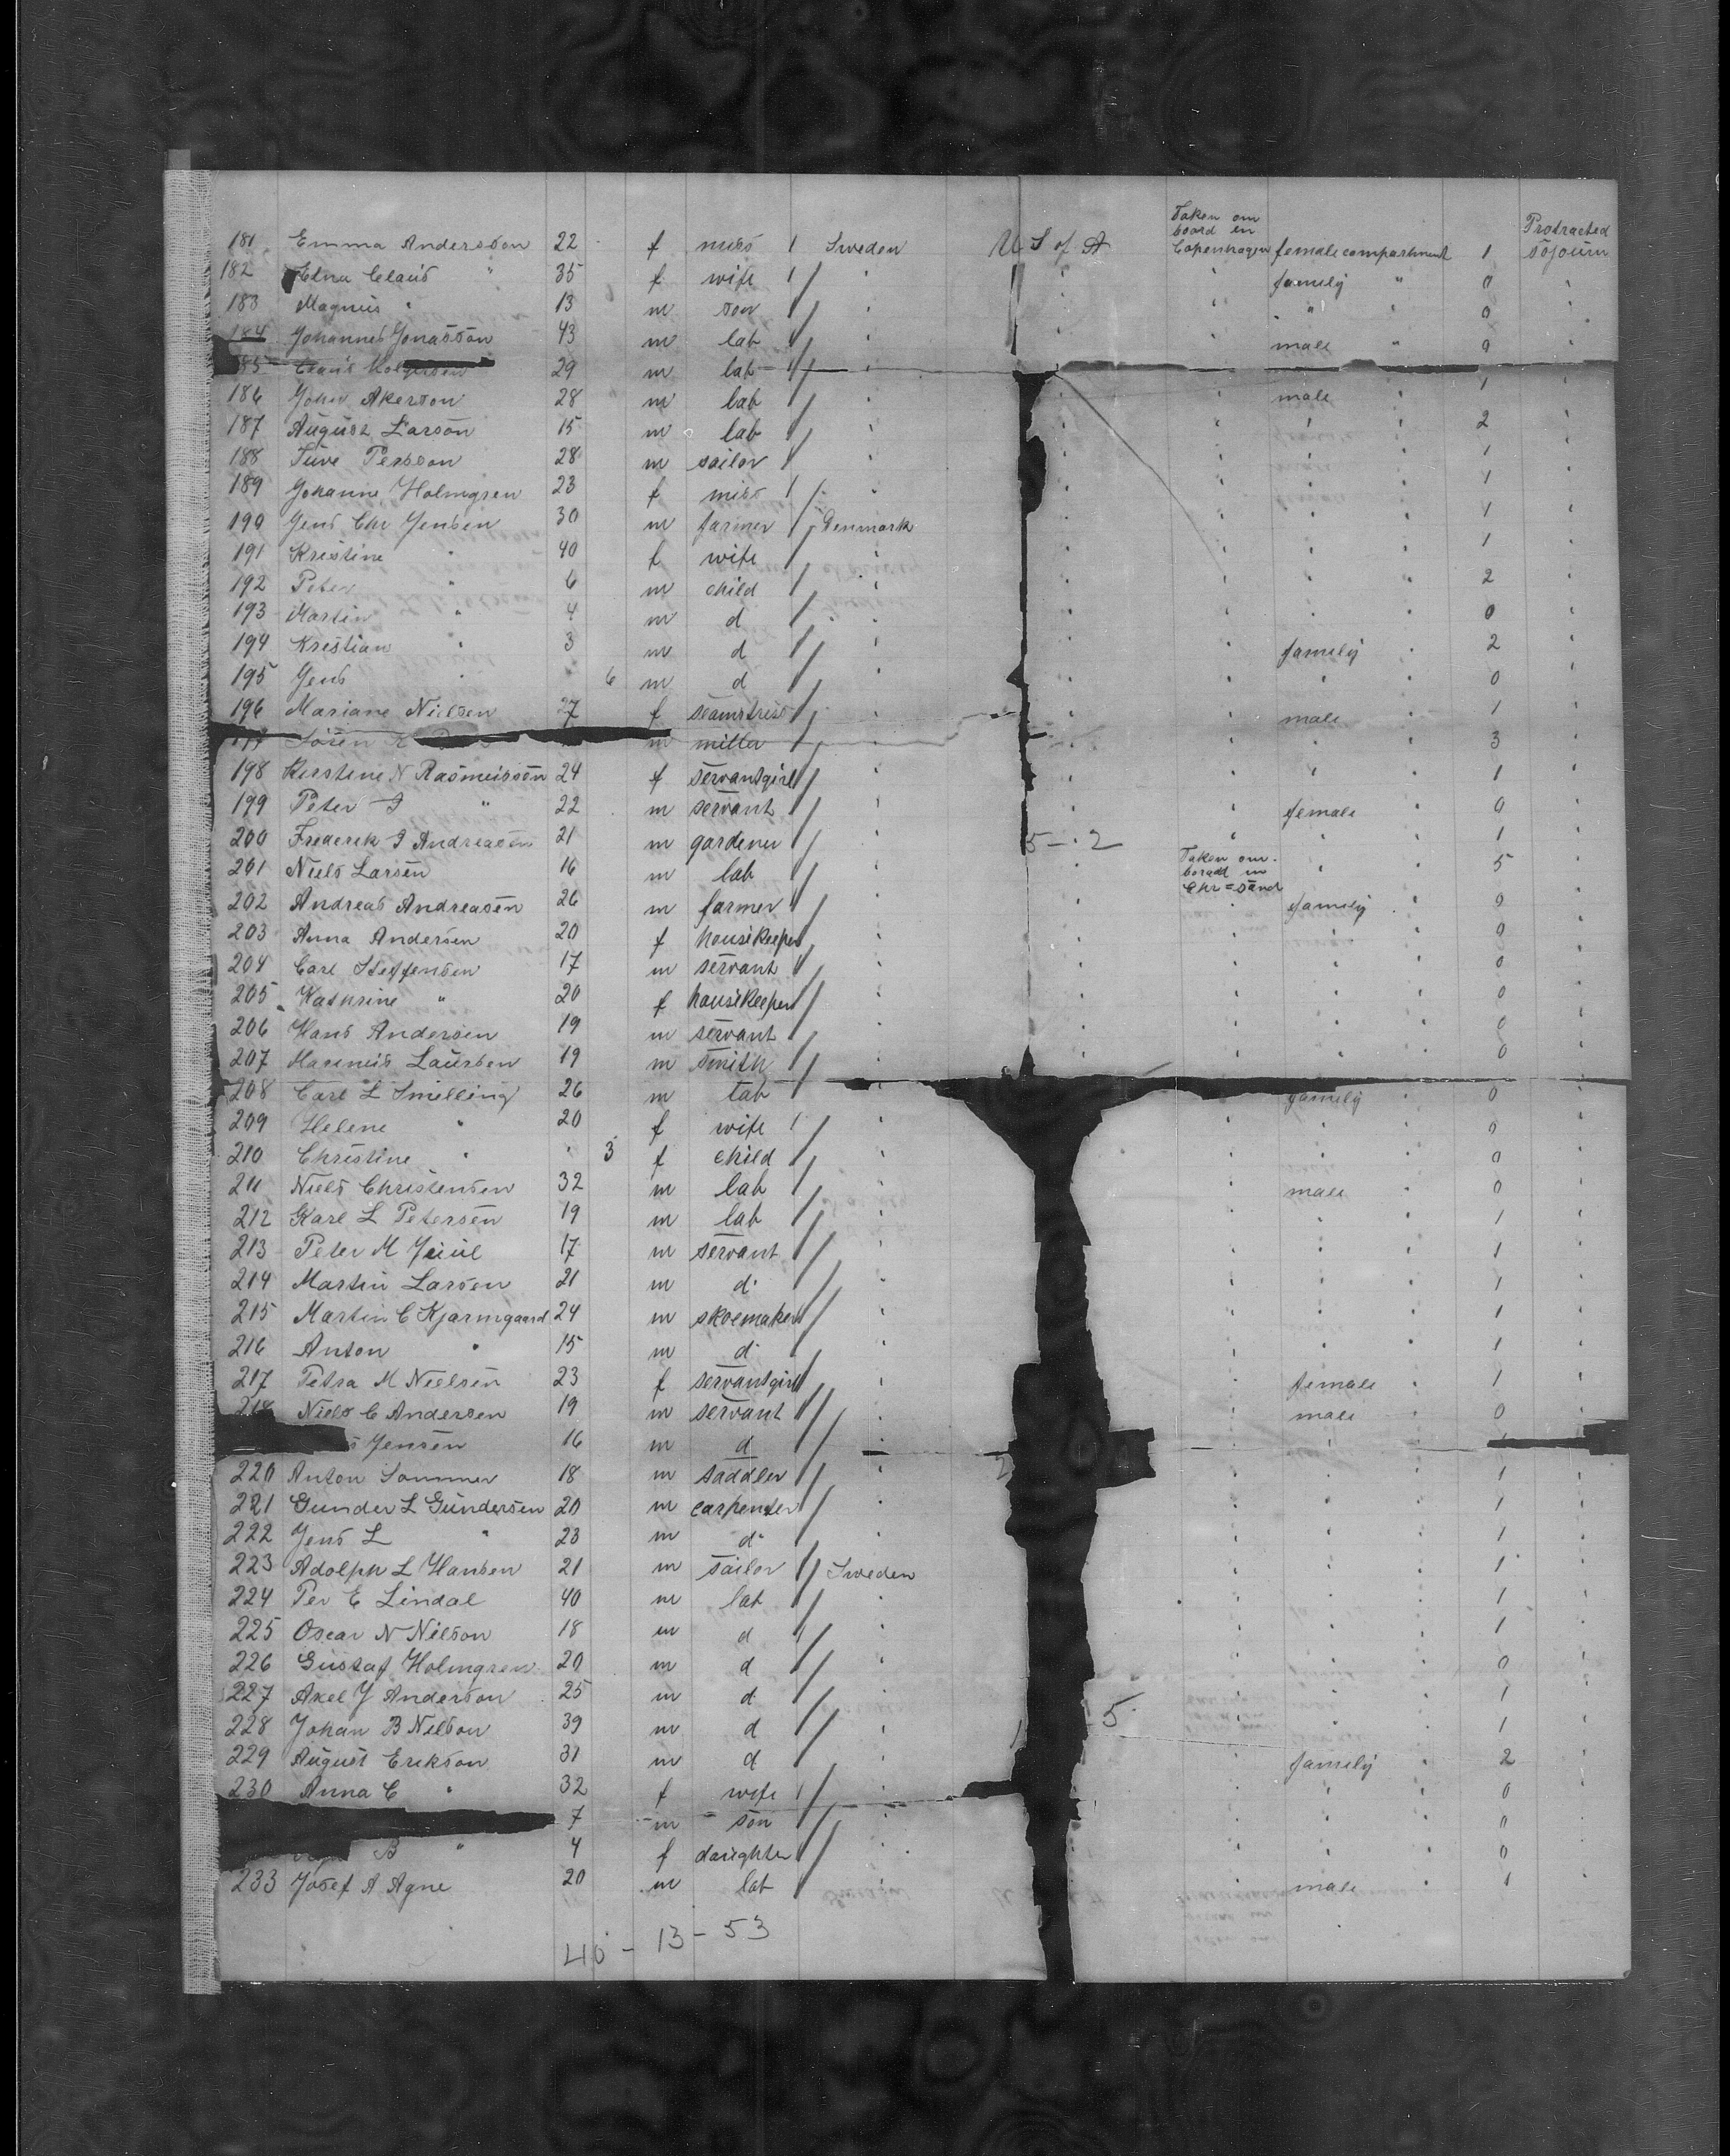 Taken om board in Copenhagen
Protracted sojourn
181 Emma Andersson 22 f miss / Sweden U S of A female compartment 1
182 Edna Claus " 35 f wife / " family " 0 "
183 Magnus " 13 m son / " " 0 "
184 Johannes Jonasson 43 m lab / " male " 0 "
185 29 m lab / "
186 John Akerson 28 m lab / " male " 1 "
187 August Larson 15 m lab / " " " 2 "
188 Persson 28 m sailor / " " 1 "
189 Johanne Holmgren 23 f miss / " " 1 "
190 Jens Chr Jensen 30 m farmer / Denmark " 1 "
191 Kristine " 40 f wife / " " 1 "
192 Peter " 6 m child / " " 2 "
193 Martin " 4 m d / " " 0 "
194 Kristian " 3 m d / " family " 2 "
195 Jens " " 6 m d / " " " 0 "
196 Mariane Nielsen 27 f seamstress / " male " 1 "
Sören m miller / " " 3 "
198 Kerstine N Rasmussen 24 f servantgirl / " " 1 "
199 Peter J " 22 m servant / " female " 0 "
200 Frederik J Andreasen 21 m gardener / " 5 - 2 " 1 "
201 Niels Larsen 16 m lab / " Taken om boradt in Chr=sand " 5 "
202 Andreas Andreasen 26 m farmer / " family " 0 "
203 Anna Andersen 20 f housekeeper / " " 0 "
204 Carl Steffensen 17 m servant / " " 0 "
205 Kathrine " 20 f housekeeper / " " 0 "
206 Hans Andersen 19 m servant / " " 0 "
207 Laursen 19 m smith / " " 0 "
208 Carl L Smelling 26 m lab " family " 0 "
209 Helene " 20 f wife / " " 0 "
210 Christine " " 3 f child / " " 0 "
211 Niels Christensen 32 m lab / " male " 0 "
212 Karl L Petersen 19 m lab / " " 1 "
213 Peter M Juul 17 m servant / " " 1 "
214 Martin Larsen 21 m d / " " 1 "
215 Martin C Kjarmgaard 24 m skoemaker / " " 1 "
216 Anton " 15 m d / " " 1 "
217 Petra M Nielsen 23 f servantgirl / " female " 1 "
218 Niels C Andersen 19 m servant / " male " 0 "
s Jensen 16 m d / "
220 Anton Sommer 18 m saddler / " " 1 "
221 Gunder L Gundersen 20 m carpenter / " " 1 "
222 Jens L " 23 m d / " " 1 "
223 Adolph L Hansen 21 m sailor / Sweden " 1 "
224 Per E Lindal 40 m lab / " " 1 "
225 Oscar N Nilson 18 m d / " " 1 "
226 Gustaf Holmgren 20 m d / " " 0 "
227 Axel J Anderson 25 m d / " 5 " 1 "
228 Johan B Nelson 39 m d / " " 1 "
229 August Erikson 31 m d / " family " 2 "
230 Anna C " 32 f wife / " " 0 "
7 m son / " " 0 "
B " 4 f daughter / " " 0 "
233 Josef A Agne 20 m lab / " male " 1 "
40 - 13 - 53